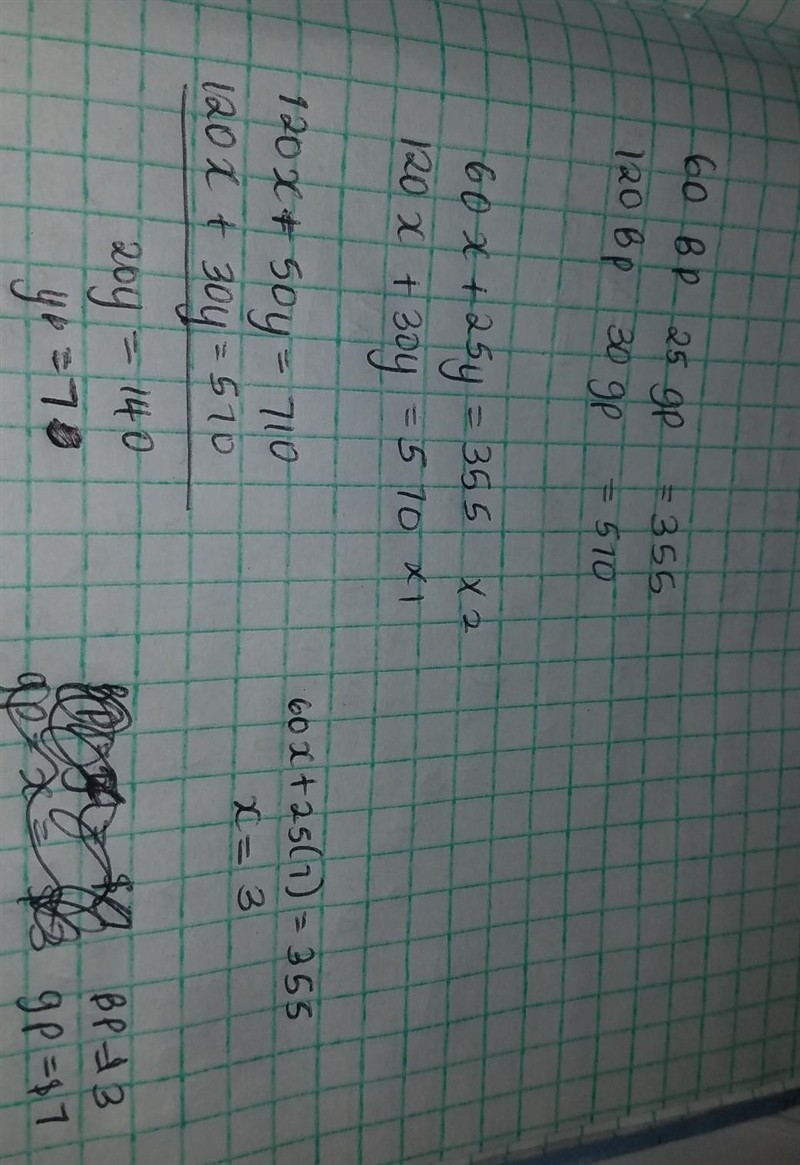 60 Bp 25 gp = 355
120 Bp 30 gp = 510
60x + 25y = 355 x2
120x + 30y = 570 x1
120x + 50y = 710
120x + 30y = 570
20y = 140
yp = 7
60x + 25(7) = 355
x = 3
BP = $3
gp = $7